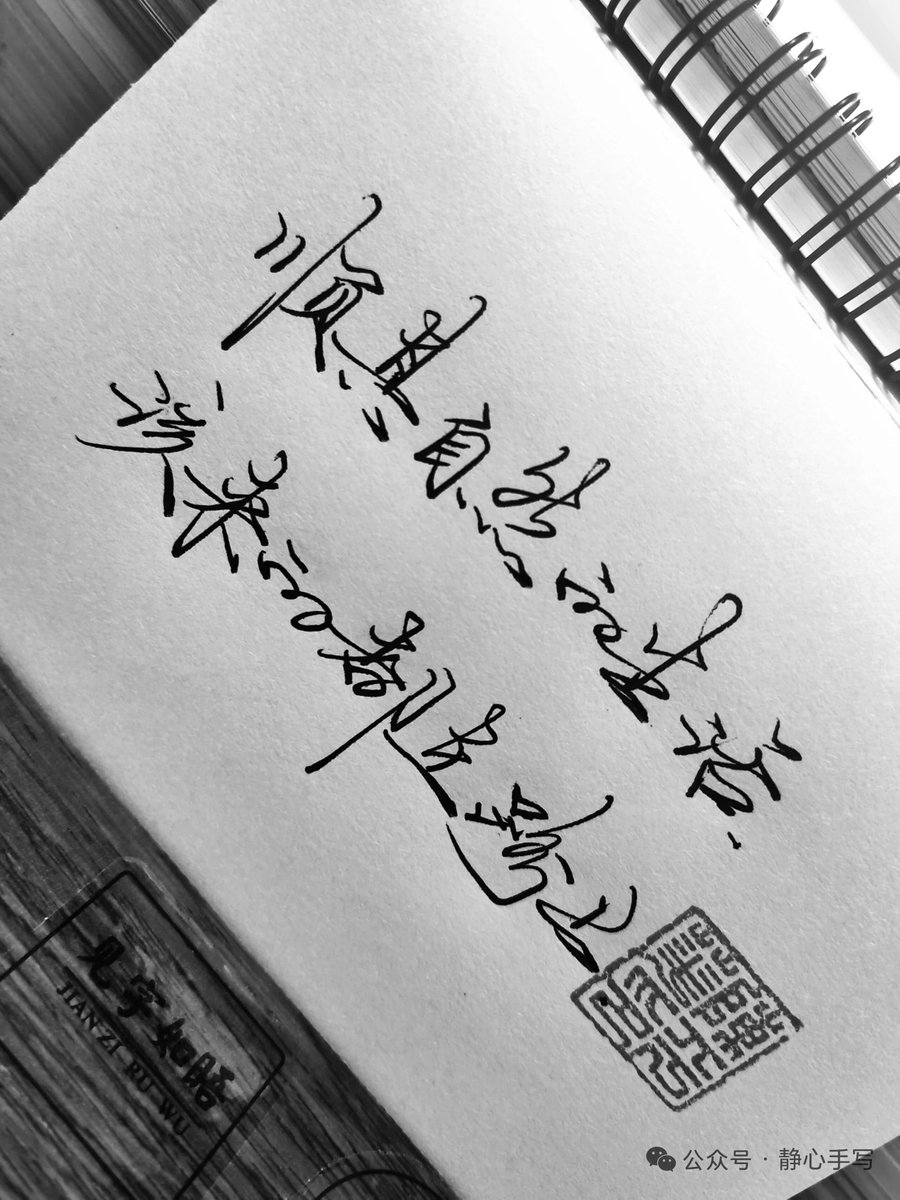 顺其自然的生活
该来的都在路上
见字如晤
JIAN ZI RU WU
公众号·静心手写